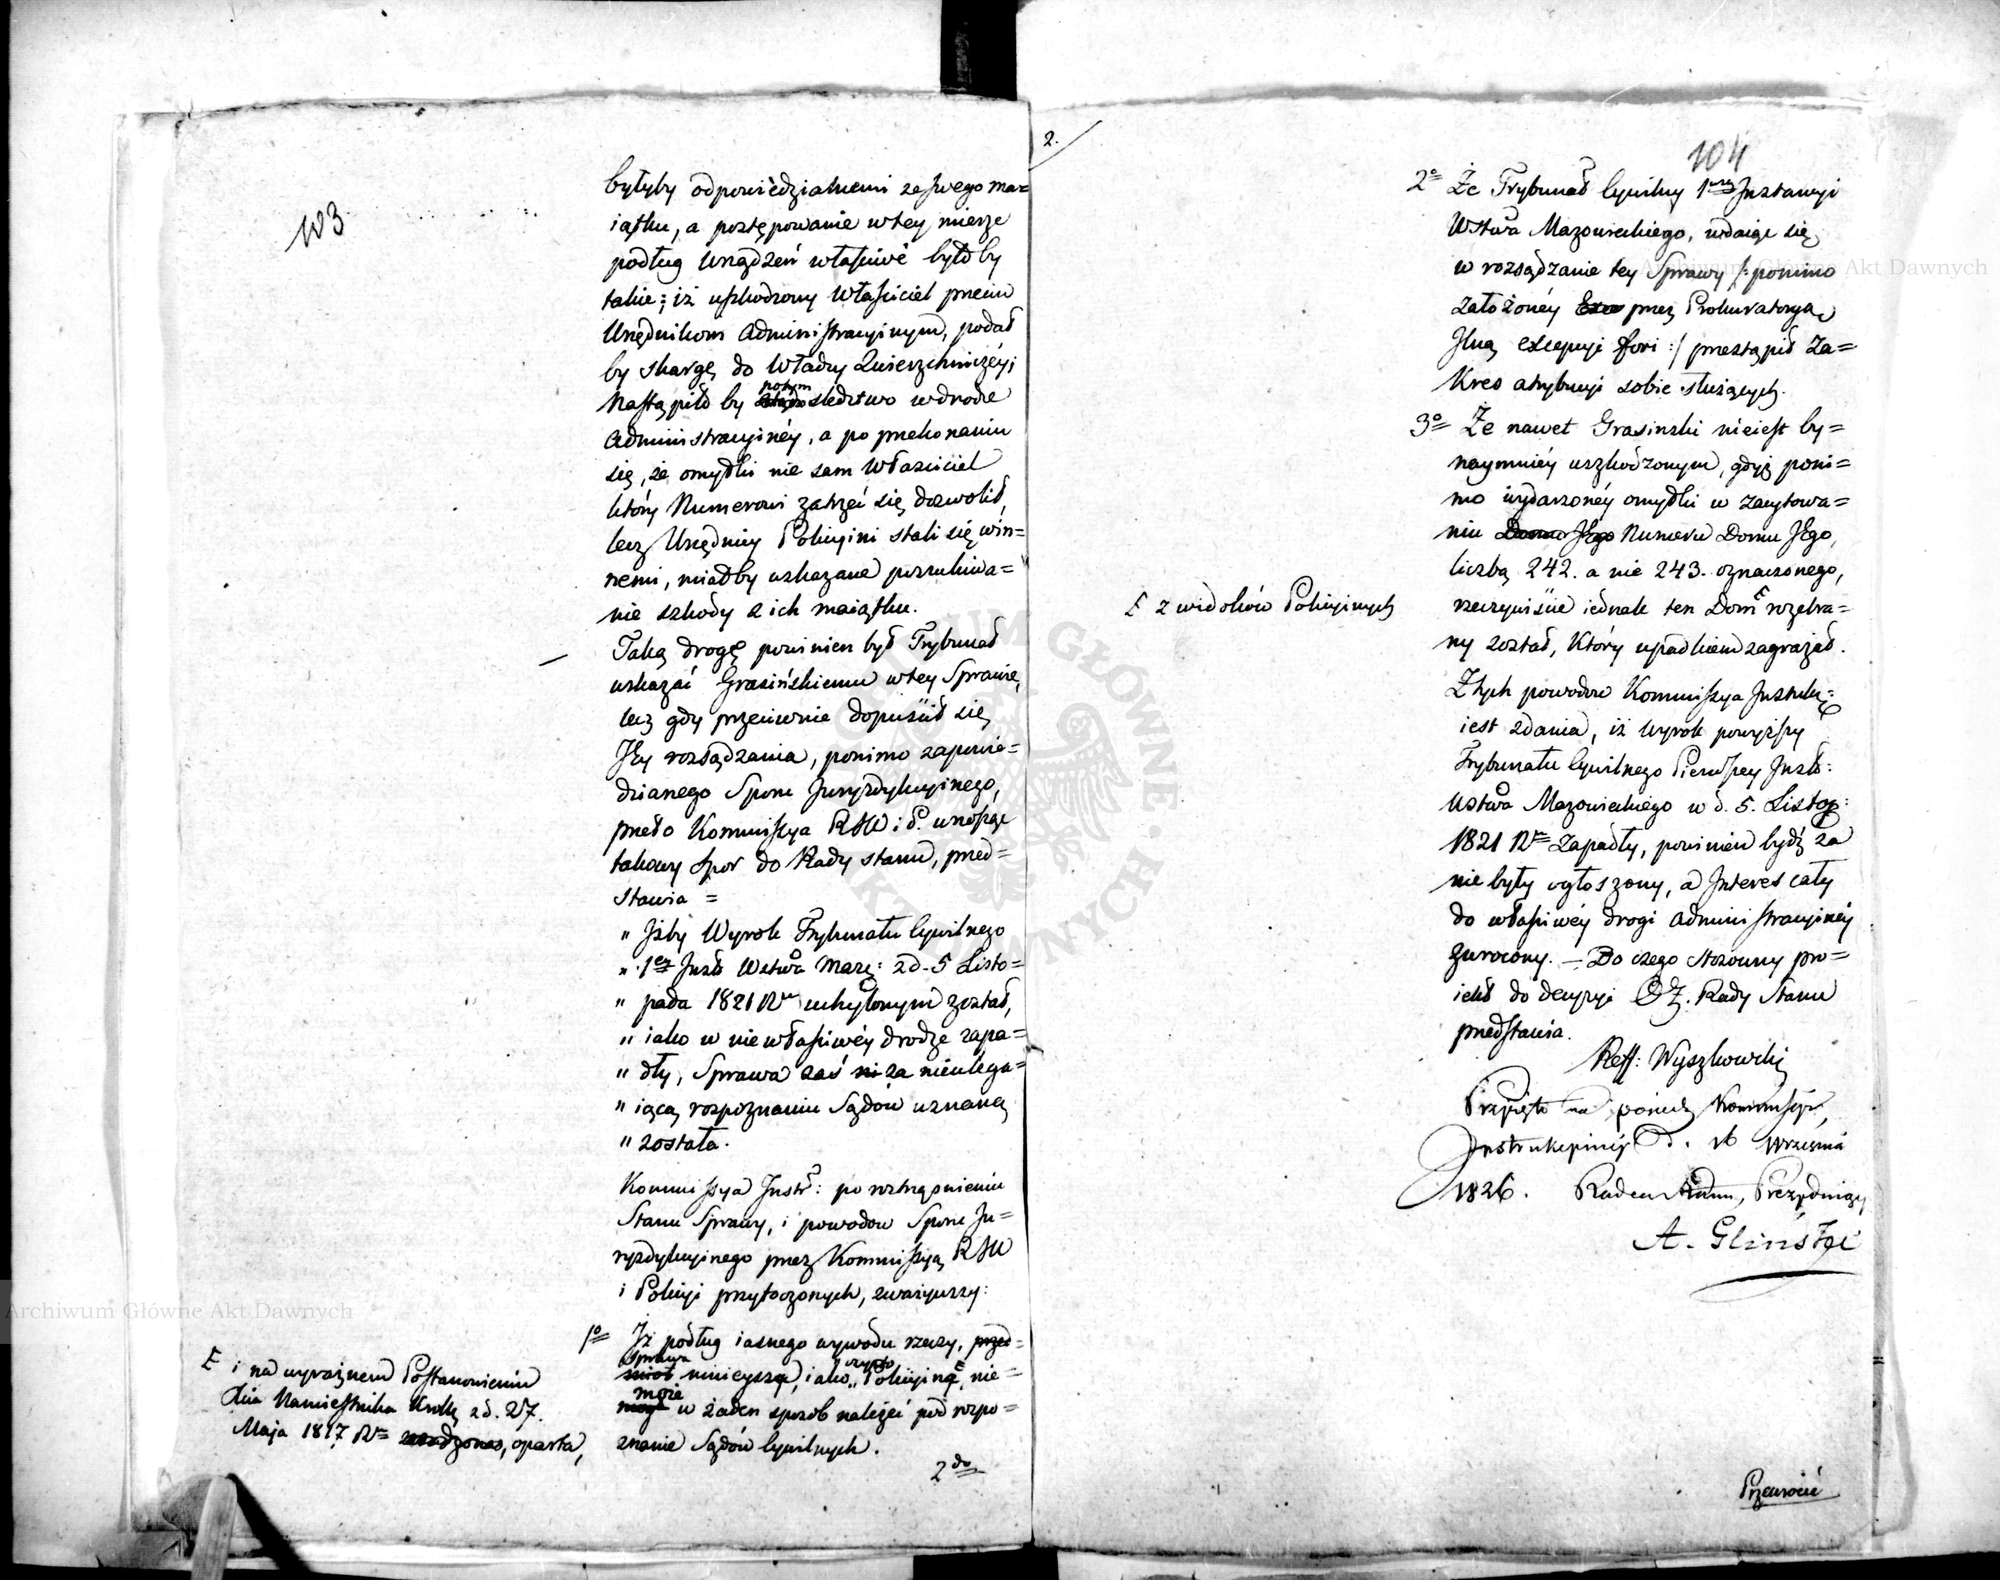 103
byłyby odpowiedzialnemi ze swego ma=
iątku, a postępowanie w tey mierze
podług urządzeń właściwé byłoby
takie; iż uszkodzony Właściciel przeciw
Urzędnikom Administracyinym, podał
by skargę do Władzy Zwierzchniczéy;
Nastąpiło by potym śledztwo w drodze
Administracyinéy, a po przekonaniu
się, że omyłki nie sam Właściciel
który Numerowi zatrzeć się dozwolił,
lecz Urzędnicy Policyini stali się win=
nemi, miałby wskazane poszukiwa=
nie szkody z ich maiątku.
Taką drogę powinien był Trybunał
wskazać Grasińskiemu w tey Sprawie,
lecz gdy przeciwnie dopuścił się
Jéy rozsądzania, pomimo zapowie=
dzianego Sporu Juryzdykcyinego,
przeto Kommissya RSW i P. wnosząc
takowy spor do Rady Stanu, przed=
stawia =
" Jżby Wyrok Trybunału Cywilnego
" 1ey Inst Wztwa Maz: z d. 5 Listo=
" pada 1821 R. uchylonym został,
" iako w niewłaściwéy drodze zapa=
" dły, Sprawa zaś ni za nieulega=
" iącą rozpoznaniu Sądów uznaną
" została.
Kommissya Instr: po roztrząśnieniu
Stanu Sprawy, i powodow Sporu Ju=
ryzdykcyinego przez Kommissyą RSW
i Policyi przytoczonych, zważywszy:
1o Iż podług iasnego wywodu rzeczy, przed=
sprawa
miot ninieysza, iako czysto Policyina, nie=
może
w żaden sposob należeć pod rozpo=
znanie Sądów Cywilnych.
i na wyraźnem Postanowieniu
Xcia Namiestnika Krolk: z d. 27.
Maja 1817 R. oparta,
2do
2.
104
2o Że Trybunał Cywilny 1wszey Instancyi
Wztwa Mazowieckiego, wdaiąc się
w rozsądzanie tey Sprawy /: pomimo
założonéy Exce przez Prokuratoryą
Jlną excepcyi fori :/ przestąpił za=
kres atrybucyi sobie służących.
3o Że nawet Grasinski nieiest by=
naymniéy uszkodzonym, gdyż pomi=
mo wydarzonéy omyłki w zacytowa=
niu Domu Jego Numeru Domu Jego,
liczbą 242. a nie 243. oznaczonego,
rzeczywiście iednak ten Dom rozebra=
ny został, Który upadkiem zagrażał.
z widoków Policyinych
Z tych powodow Kommissya Instruk:
iest zdania, iż wyrok powyższy
Trybunału Cywilnego Pierwszey Inst:
Wztwa Mazowieckiego w d. 5. Listop:
1821 R. zapadły, powinien bydź za
nie były ogłoszony, a Interes cały
do właściwéy drogi administracyinéy
zwrocony. — Do czego stosowny pro=
iekt do decyzyi Rady Stanu
przedstawia.
Reff: Wyszkowski
Przyięto na posiedz Kommissyi
Instrukcyinéy d. 16 Września
1826. Radca Stanu, Prezyduiący
A. Gliński
Przewrócić
Archiwum Główne Akt Dawnych
Archiwum Główne Akt Dawnych